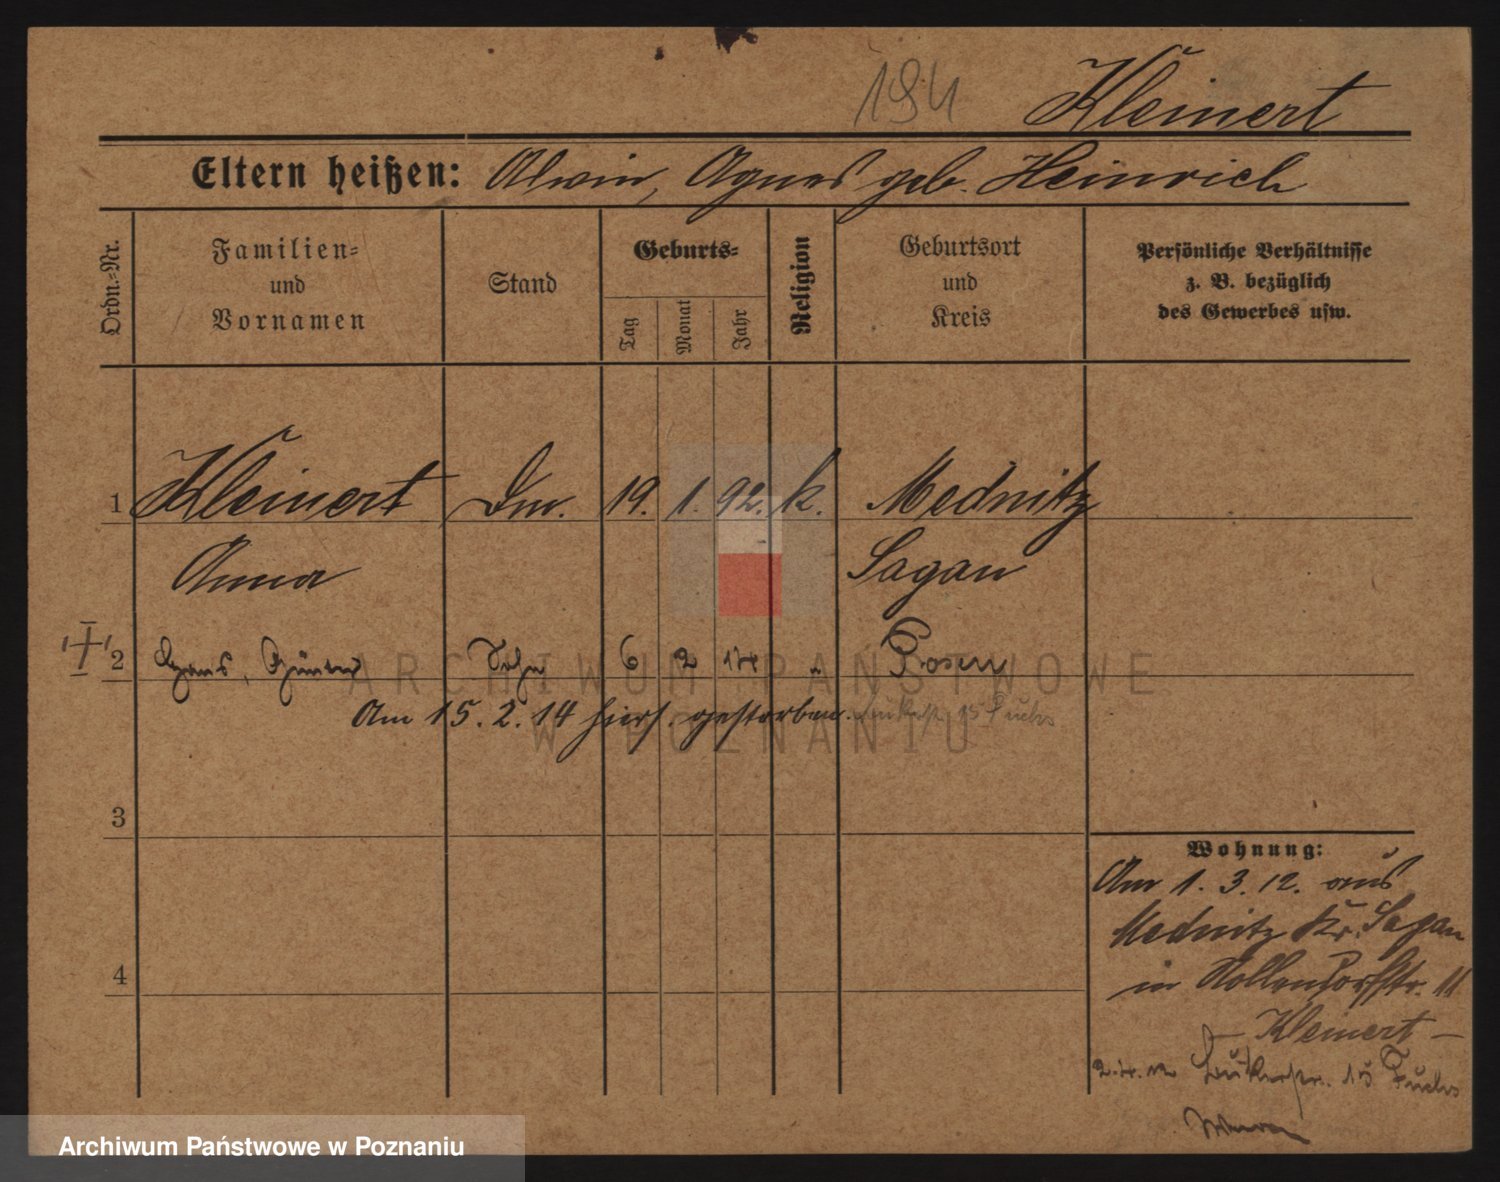 194 Kleinert
Eltern heißen: Alwin, Agnes geb. Heinrich
Ordn.-Nr.
Familien-
und
Vornamen
Stand
Geburts-
Tag
Monat
Jahr
Religion
Geburtsort
und
Kreis
Persönliche Verhältnisse
z. B. bezüglich
des Gewerbes usw.
1 Kleinert 19. 1. 92. k. Mednitz
Anna Sagan
2 Hans, Günter Sohn 6 2 14 " Posen
Am 15. 2. 14 hiers. gestorben. 15 Fuchs
3
4
Wohnung:
Am 1. 3. 12. aus
Mednitz Kr. Sagan
in Nollendorfstr. 11
Kleinert —
15 Fuchs
ARCHIWUM PAŃSTWOWE
W POZNANIU
Archiwum Państwowe w Poznaniu